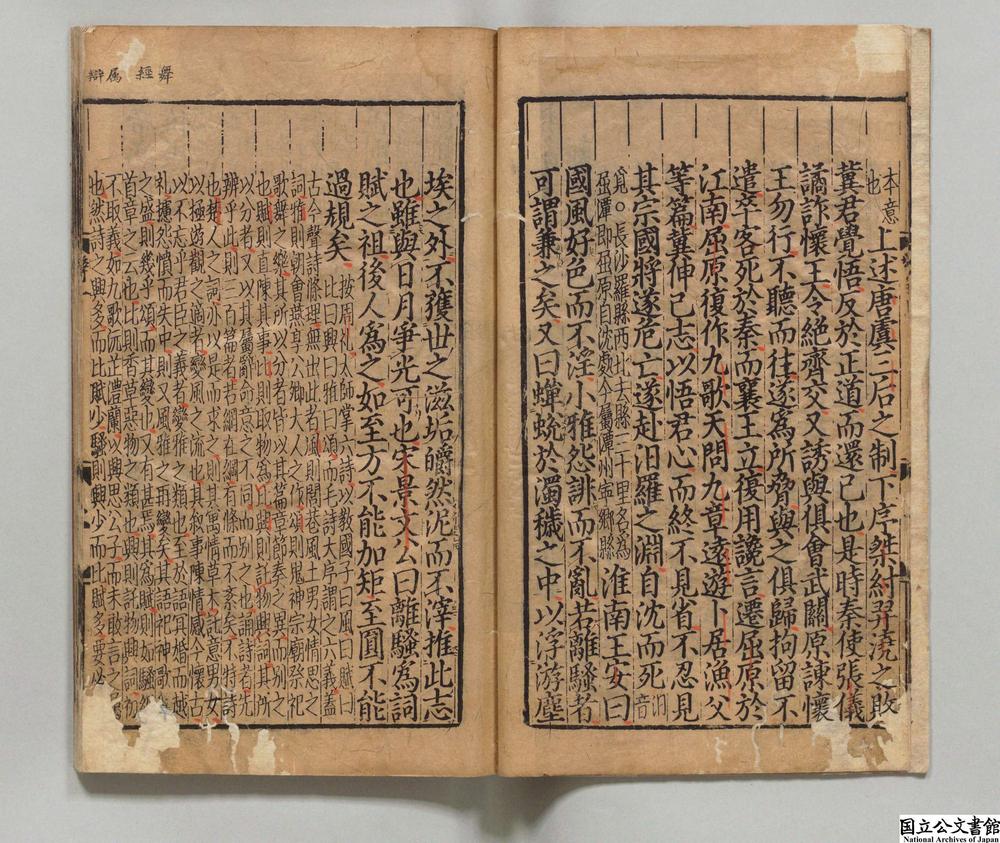 本意
也 上述唐虞三后之制下序桀紂羿澆之敗
冀君覺悟反於正道而還已也是時秦使張儀
譎詐懷王令絶齊交又誘與俱會武關原諫懷
王勿行不聽而往遂為所脅與之俱歸拘留不
遣卒客死於秦而襄王立復用讒言遷屈原於
江南屈原復作九歌天問九章遠遊卜居漁父
等篇冀伸已志以悟君心而終不見省不忍見
其宗國將遂危亡遂赴汨羅之淵自沈而死 汨音
覓○長沙羅縣西北去縣三十里名為
屈潭即屈原自沈處今屬潭州寧鄉縣 淮南王安曰
國風好色而不淫小雅怨誹而不亂若離騷者
可謂兼之矣又曰蟬蛻於濁穢之中以浮游塵
埃之外不獲世之滋垢皭然泥而不滓推此志
也雖與日月爭光可也宋景文公曰離騷為詞
賦之祖後人為之如至方不能加矩至圓不能
過規矣 按周礼太師掌六詩以教國子曰風曰賦曰
比曰興曰雅曰頌而毛詩大序謂之六義蓋
古今聲詩條理無出此者風則閭巷風土男女情思之
詞雅則朝會燕享公卿大人之作頌則鬼神宗廟祭祀
歌舞之樂其所以分者皆以其篇章節奏之異而別之
也賦則直陳其事比則取物為比興則託物興詞其所
以分者又以其屬辭命意之不同而別之也誦詩者先
辨乎此則三百篇者若網在綱有條而不紊矣不特詩
也楚人之詞亦以是而求之則其寓情草木託意男女
以極遊觀之適者變風之流也其叙事陳情感今懷古
以不忘乎君臣之義者變雅之類也至於語冥婚而越
礼攄怨憤而失中則又風雅之再變矣其語祀神歌舞
之盛則幾乎頌而其變也又有甚焉其為賦則如騷經
首章之云也比則香草惡物之類也興則託物興詞初
不取義如九歌沅芷澧蘭以興思公子而未敢言之屬
也然詩之興多而比賦少騷則興少而比賦多要必
舞 經 属 辯
国立公文書館
National Archives of Japan